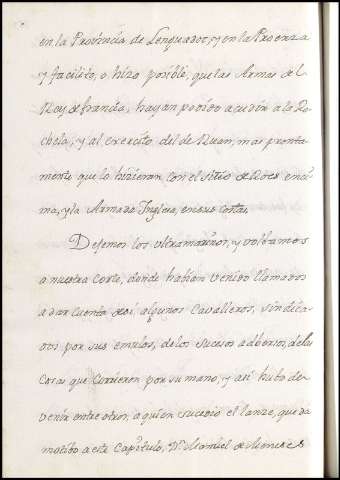 en la Provincia de Lenguadoc, y en la Proenza
y facilitó, o hizo posible, que las Armas del
Rey de francia, hayan podido acudir a la Ro-
chela, y al exercito del de Ruan, mas pronta-
mente que lo hizieran con el sitio de enci-
ma, y la Armada Inglesa, en sus costas.
Dejemos los ultramarinos, y volbamos
a nuestra Corte, donde habían venido llamados
a dar cuenta de si algunos Cavalleros, sindica-
dos por sus emulos, de los sucesos adbersos, de las
cosas que corrieron por su mano, y asi hubo de
venir entre otros, a quien sucedio el lanze, que da
motibo a este Capitulo, Dn Manuel de Meneses